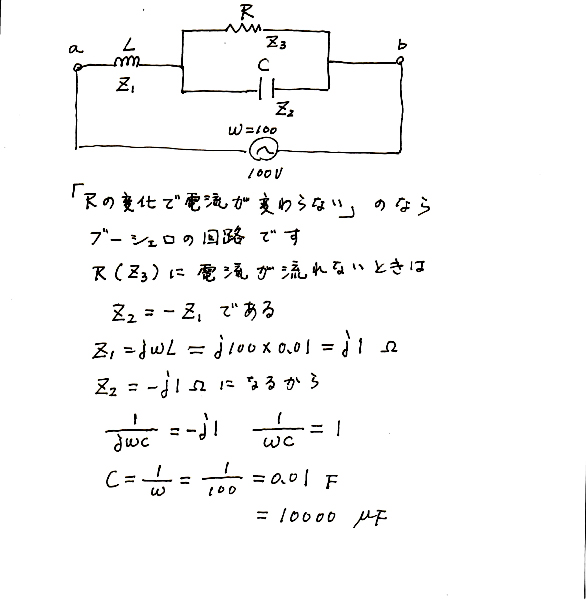 R
a L Z3 b
C
Z1
Z2
W=100
100V
「Rの変化で電流が変わらない」のなら
ブーシェロの回路です
R(Z3)に電流が流れないときは
Z2=-Z1である
Z1=jwL=j100×0.01=j1 Ω
Z2=-j1Ωになるから
1/jwc=-j1 1/wc=1
C=1/w=1/100=0.01 F
=10000 μF